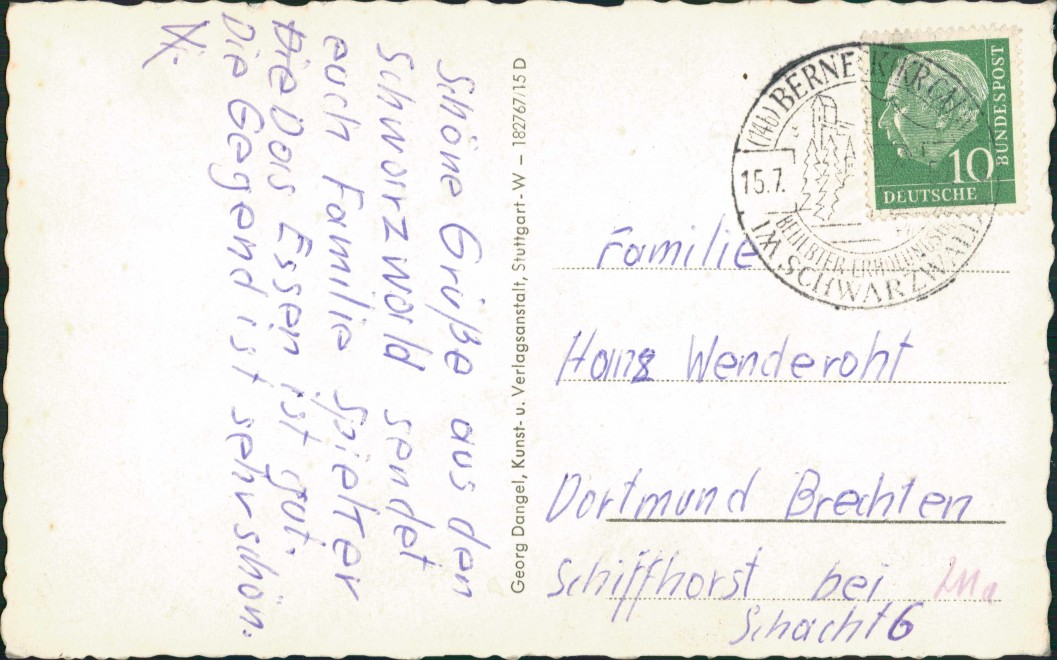 Schöne Grüße aus den
Schwarzwald sendet
euch Familie Spielter
Das Essen ist gut.
Die Gegend ist sehr schön.
Georg Dangel, Kunst- u. Verlagsanstalt, Stuttgart-W – 182767/15 D
(14b) BERNECK KR.
15.7.
BELIEBTER ERHOLUNGS
IM SCHWARZWALD
10
DEUTSCHE
BUNDESPOST
Familie
Hans Wenderoht
Dortmund Brechten
Schiffhorst bei
Schacht 6